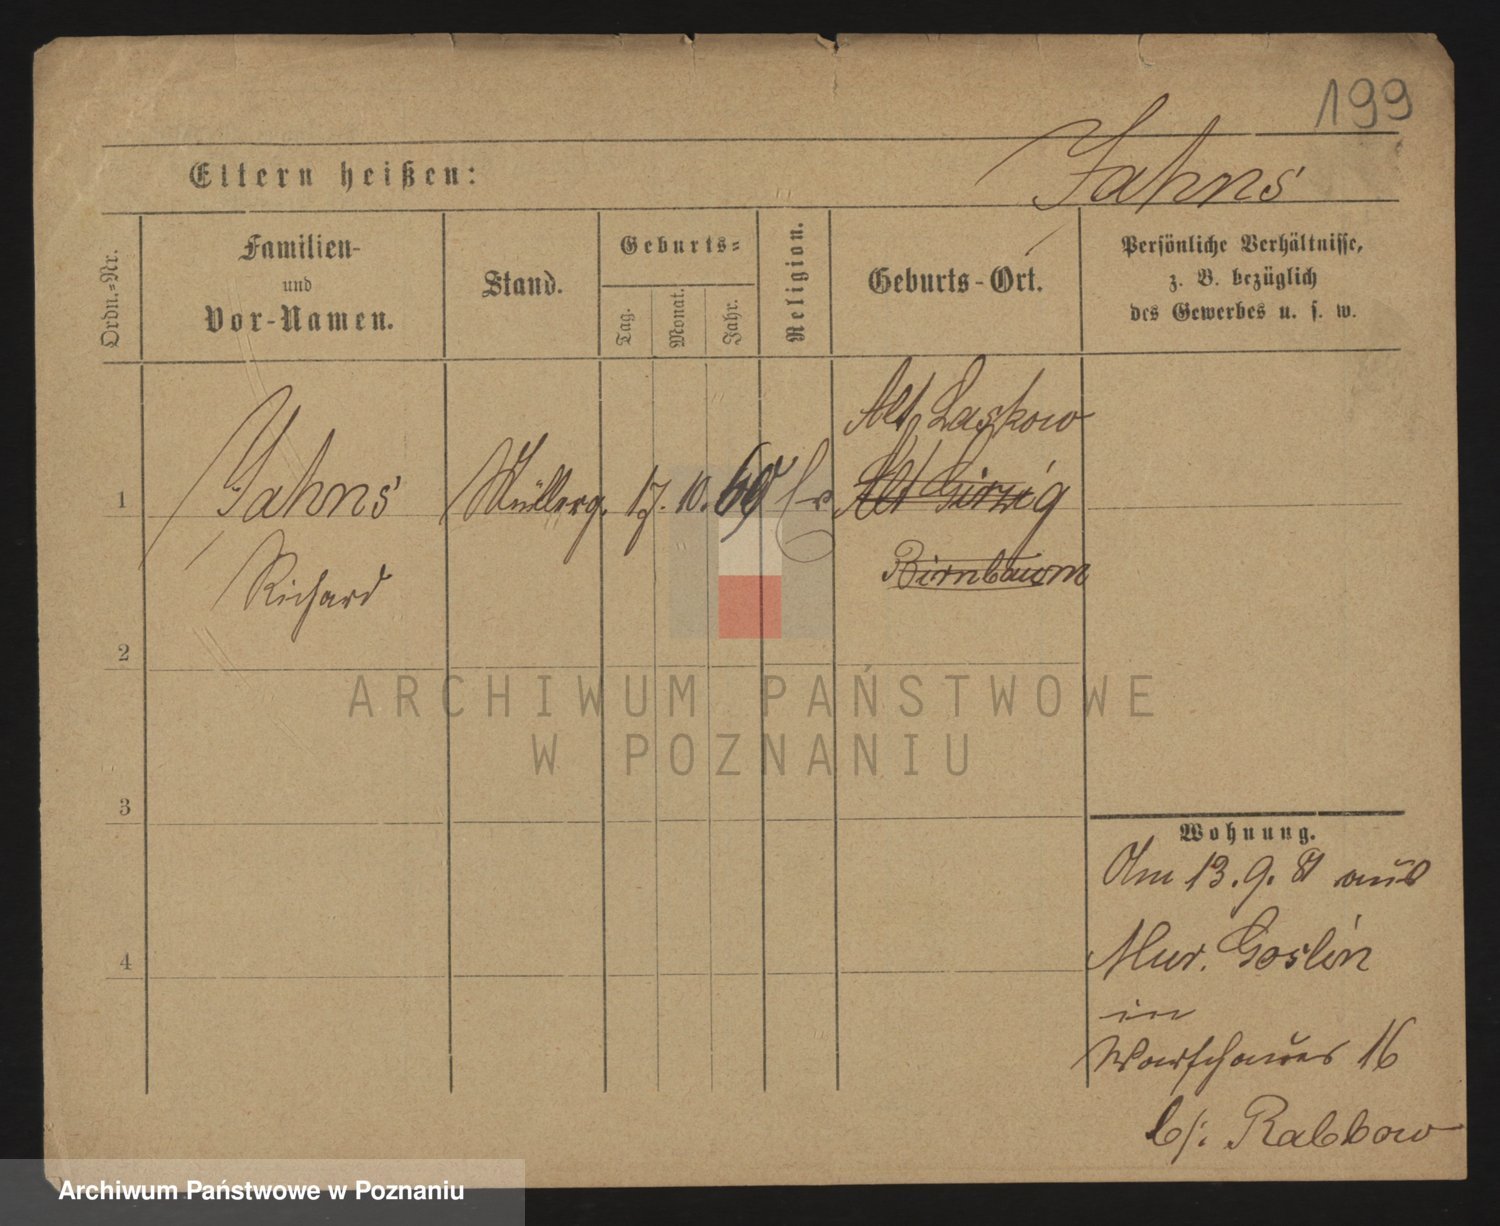 199
Eltern heißen:
Jahns
Ordn.=Nr.
Familien-
und
Vor-Namen.
Stand.
Geburts=
Tag.
Monat.
Jahr.
Religion.
Geburts-Ort.
Persönliche Verhältnisse,
z. B. bezüglich
des Gewerbes u. s. w.
Alt Laskow
1 Jahns Müllerg. 17. 10. 60 Alt Görzig
Richard
Birnbaum
2
3
4
Wohnung.
Am 13. 9. 81 aus
Mur. Goslin
in
Warschauer 16
b/: Rabbow
ARCHIWUM PAŃSTWOWE
W POZNANIU
Archiwum Państwowe w Poznaniu